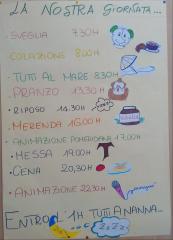 LA NOSTRA GIORNATA...
• SVEGLIA 7.30H
• COLAZIONE 8.00H
• TUTTI AL MARE 8.30H
• PRANZO 13.30H
• RIPOSO 14.30H
• MERENDA 16.00H
• ANIMAZIONE POMERIDIANA 17.00H
• MESSA 19.00H
• CENA 20.30H
• ANIMAZIONE 22.30H
ENTRO L'1H TUTTI A NANNA...
ZzZz